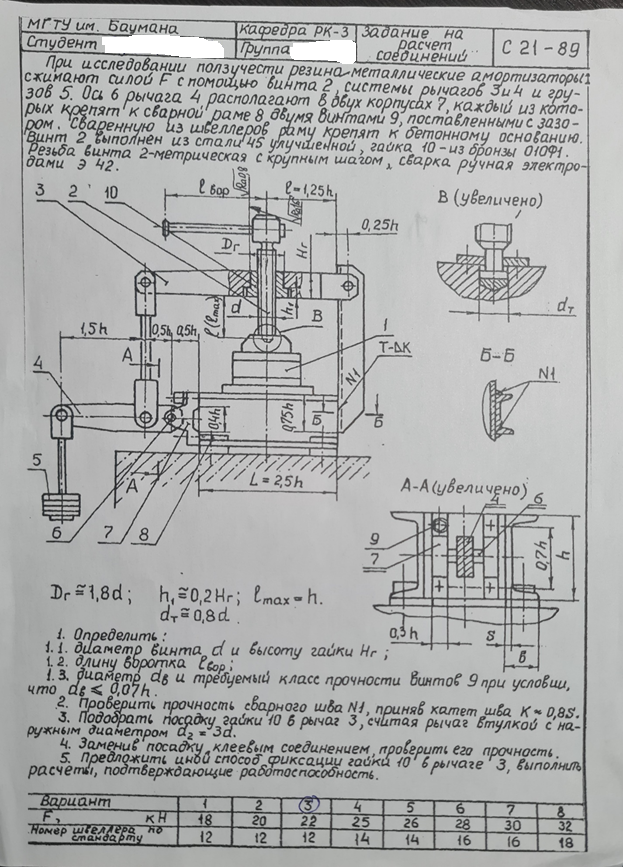 МГТУ им. Баумана
Кафедра РК-3
Задание на расчет соединений
С 21-89
Студент
Группа
При исследовании ползучести резина-металлические амортизаторы 1
сжимают силой F с помощью винта 2, системы рычагов 3 и 4 и гру-
зов 5. Ось 6 рычага 4, располагают в двух корпусах 7, каждый из кото-
рых крепят к сварной раме 8 двумя винтами 9, поставленными с зазо-
ром. Сваренную из швеллеров раму крепят к бетонному основанию.
Винт 2 выполнен из стали 45 улучшенной, гайка 10-из бронзы О10Ф1.
Резьба винта 2-метрическая с крупным шагом, сварка ручная электро-
дами Э 42.
3
2
10
lвор
l=1,25h
В (увеличено)
0,25h
Dг
Hг
d
h₁
l(lmax)
В
1
Т-ΔК
N1
dт
1,5h
0,5h
0,5h
А
4
Б-Б
N1
0,4h
0,75h
Б
Б
5
А
L=2,5h
6
7
8
А-А (увеличено)
4
6
9
7
0,7h
h
0,3h
s
в
Dг≅1,8d; h₁≅0,2Hг; lmax=h.
dт≅0,8d.
1. Определить:
1.1. диаметр винта d и высоту гайки Hг;
1.2. длину воротка lвор;
1.3. диаметр dв и требуемый класс прочности винтов 9 при условии,
что dв⩽0,07h.
2. Проверить прочность сварного шва N1, приняв катет шва К≈0,8S.
3. Подобрать посадку гайки 10 в рычаг 3, считая рычаг втулкой с на-
ружным диаметром d₂=3d.
4. Заменив посадку клеевым соединением, проверить его прочность.
5. Предложить иной способ фиксации гайки 10 в рычаге 3, выполнить
расчеты, подтверждающие работоспособность.
Вариант 1 2 3 4 5 6 7 8
F, кН 18 20 22 25 26 28 30 32
Номер швеллера по стандарту 12 12 12 14 14 16 16 18